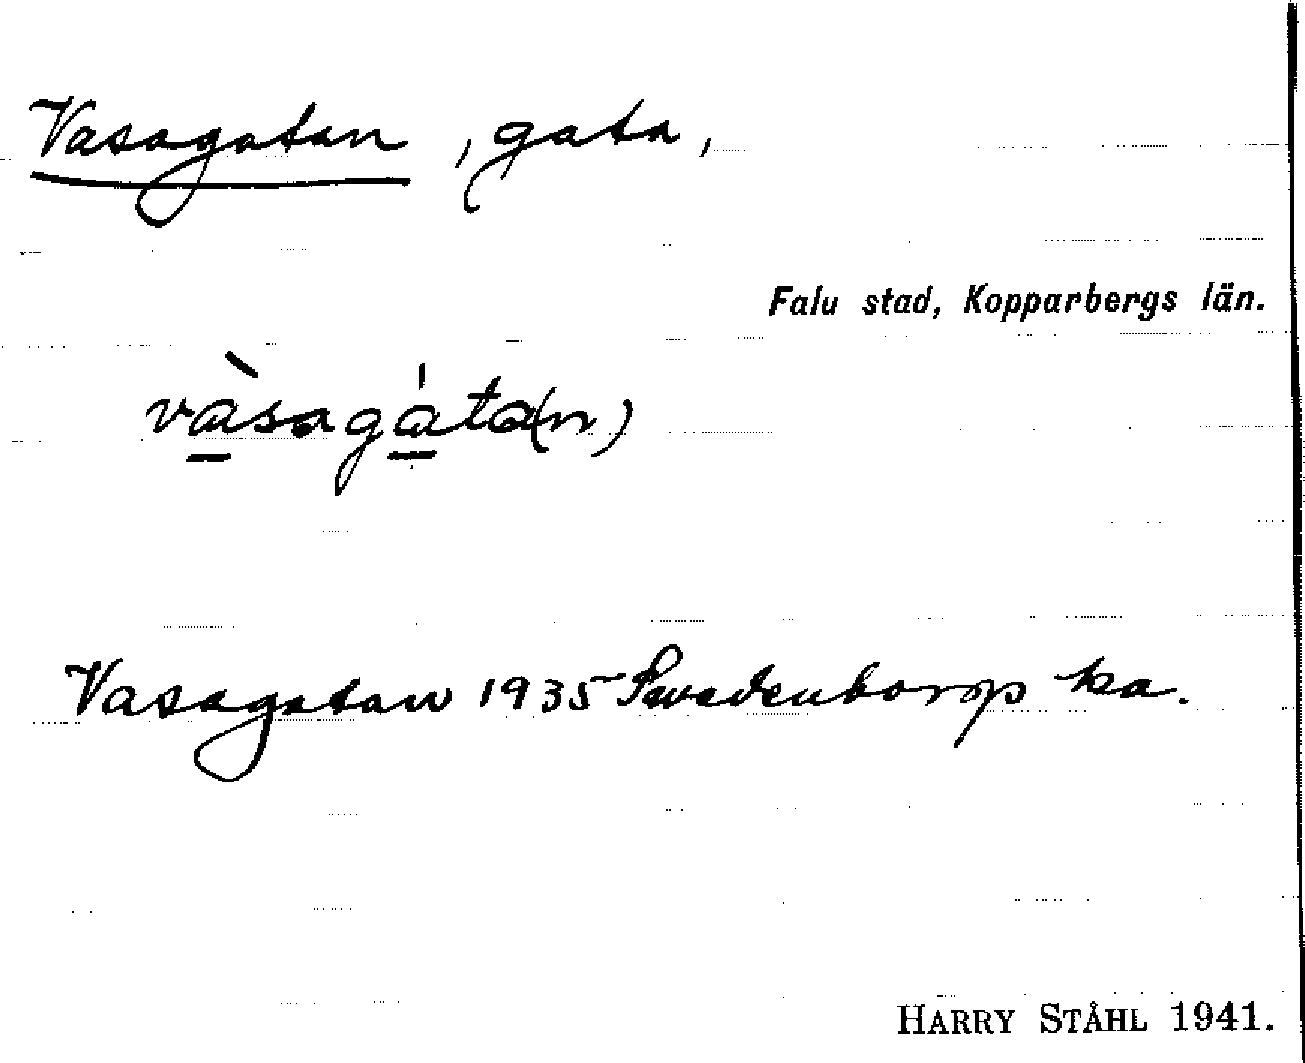 Vasagatan, gata,
Falu stad, Kopparbergs län.
và̱sagá̱ta(n)
Vasagatan 1935 Swedenborg ka.
HARRY STÅHL 1941.